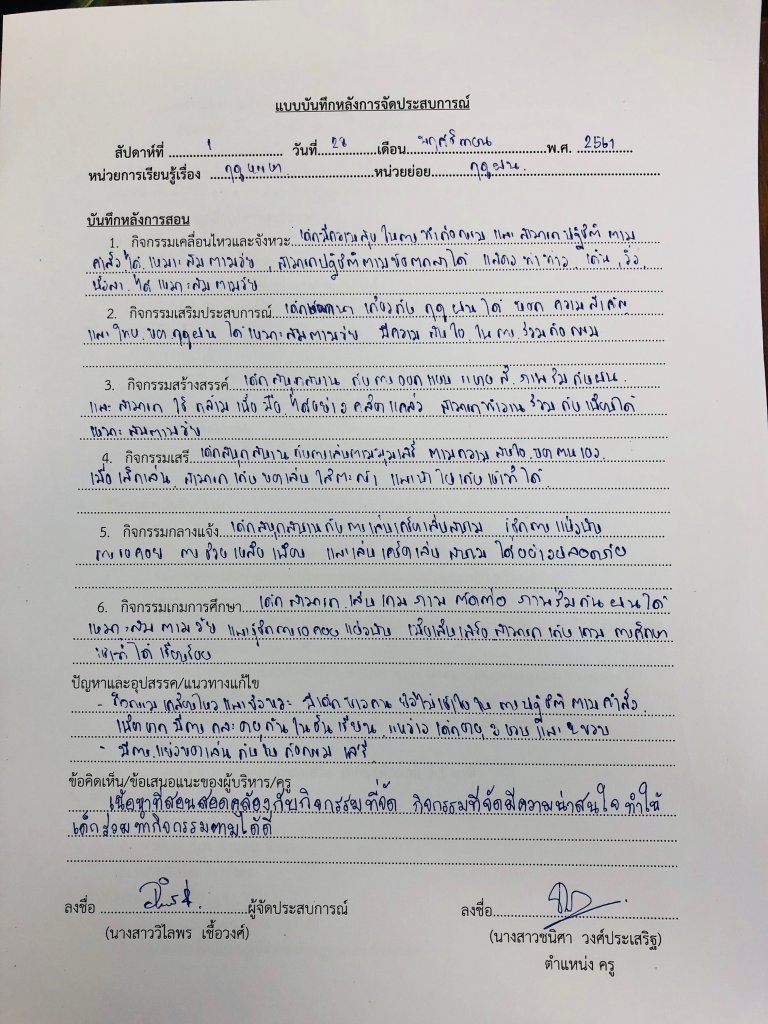 แบบบันทึกหลังการจัดประสบการณ์
สัปดาห์ที่ 1 วันที่ 28 เดือน พฤศจิกายน พ.ศ. 2561
หน่วยการเรียนรู้เรื่อง ฤดูหรรษา หน่วยย่อย ฤดูฝน
บันทึกหลังการสอน
1. กิจกรรมเคลื่อนไหวและจังหวะ เด็กมีความสุข ในการทำกิจกรรม และ สามารถปฏิบัติ ตาม
คำสั่ง ได้ เหมาะสมตามวัย สามารถปฏิบัติตามข้อตกลงได้ แสดง ท่าทาง เดิน วิ่ง
ได้ เหมาะสมตามวัย
2. กิจกรรมเสริมประสบการณ์ เด็กสนทนา เกี่ยวกับ ฤดูฝน ได้ บอก ความสำคัญ
และ โทษของฤดูฝน ได้เหมาะสมตามวัย มีความสนใจ ในการร่วมกิจกรรม
3. กิจกรรมสร้างสรรค์ เด็กสนุกสนาน กับการออกแบบ ระบายสี ภาพร่มกันฝน
และ สามารถ ใช้ กล้ามเนื้อมือ ได้อย่างคล่องแคล่ว สามารถทำงานร่วมกับเพื่อนได้
เหมาะสมตามวัย
4. กิจกรรมเสรี เด็กสนุกสนานกับการเล่นตามมุมเสรี ตามความสนใจของตนเอง
เมื่อเลิกเล่น สามารถเก็บของเล่นใส่ตะกร้า และนำไปเก็บเข้าที่ได้
5. กิจกรรมกลางแจ้ง เด็กสนุกสนานกับการเล่นเครื่องเล่นสนาม รู้จักการแบ่งปัน
การรอคอย การช่วยเหลือเพื่อน และเล่นเครื่องเล่นสนามได้อย่างปลอดภัย
6. กิจกรรมเกมการศึกษา เด็กสามารถเล่นเกมภาพตัดต่อ ภาพร่มกันฝนได้
เหมาะสมตามวัย และรู้จักการรอคอย แบ่งปัน เมื่อเล่นเสร็จสามารถเก็บเกมการศึกษา
เข้าที่ได้เรียบร้อย
ปัญหาและอุปสรรค/แนวทางแก้ไข
- กิจกรรมเคลื่อนไหวและจังหวะ มีเด็กบางคนยังไม่เข้าใจในการปฏิบัติตามคำสั่ง
เนื่องจากมีการคละอายุกันในชั้นเรียน ระหว่างเด็กอายุ 3 ขวบ และ 2 ขวบ
- มีการแย่งของเล่นกันในกิจกรรมเสรี
ข้อคิดเห็น/ข้อเสนอแนะของผู้บริหาร/ครู
เนื้อหาที่สอนสอดคล้องกับกิจกรรมที่จัด กิจกรรมที่จัดมีความน่าสนใจ ทำให้
เด็กร่วมทำกิจกรรมตามได้ดี
ลงชื่อ ผู้จัดประสบการณ์ ลงชื่อ
(นางสาววิไลพร เชื้อวงศ์) (นางสาวชนิศา วงศ์ประเสริฐ)
ตำแหน่ง ครู